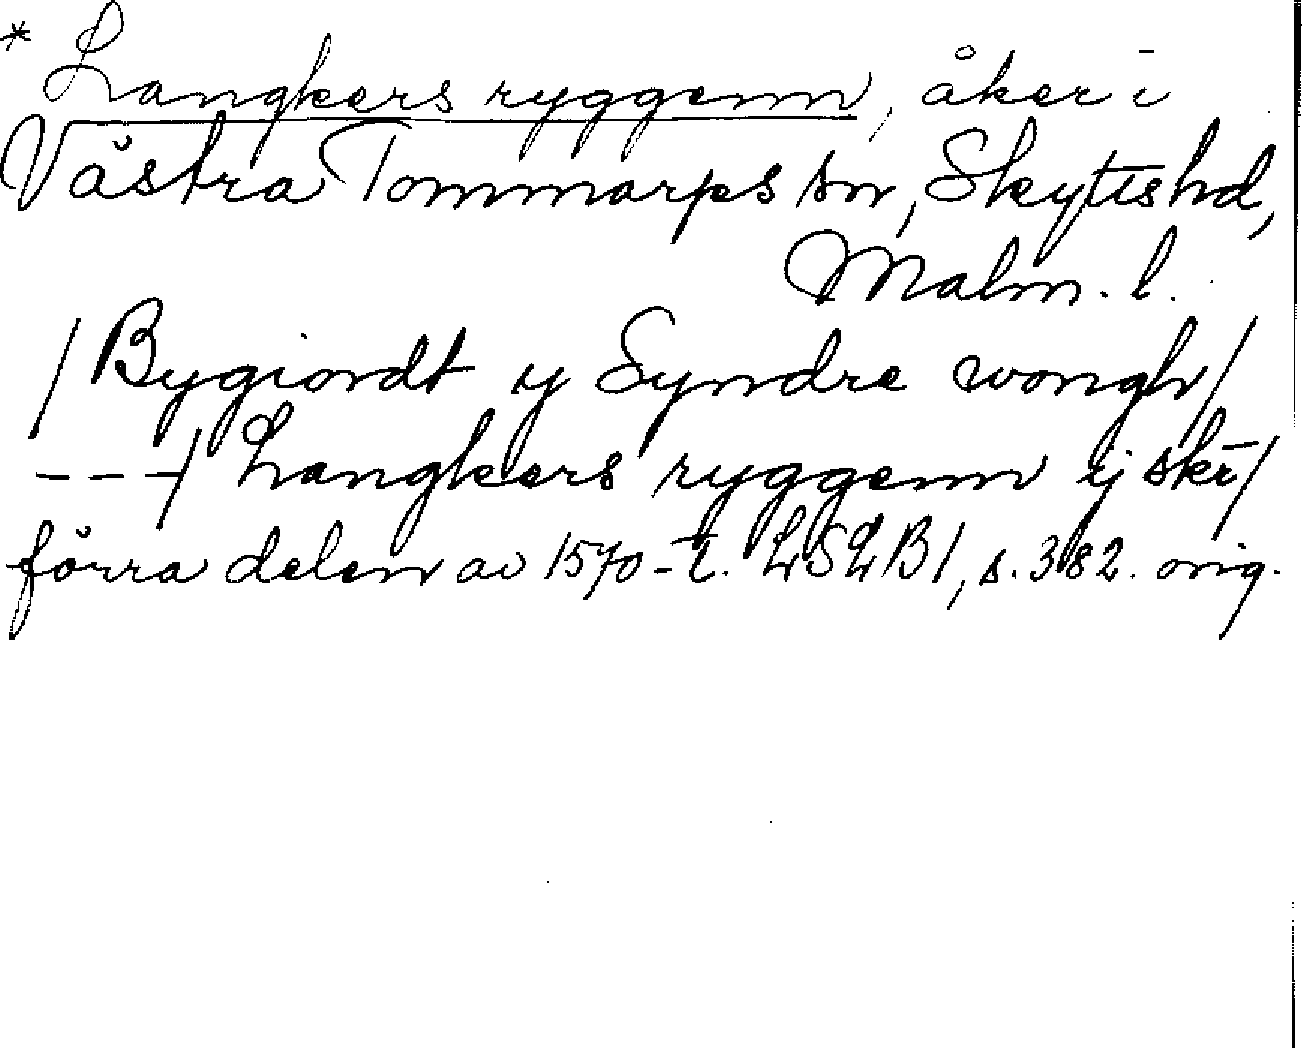 * Langkers ryggenn, åker i
Västra Tommarps sn, Skytts hd,
Malm. l.
/Bygiordt y Syndre wongh/
---/Langkers ryggenn ij skr/
förra delen av 1570-t. LSLB1, s. 382. orig.